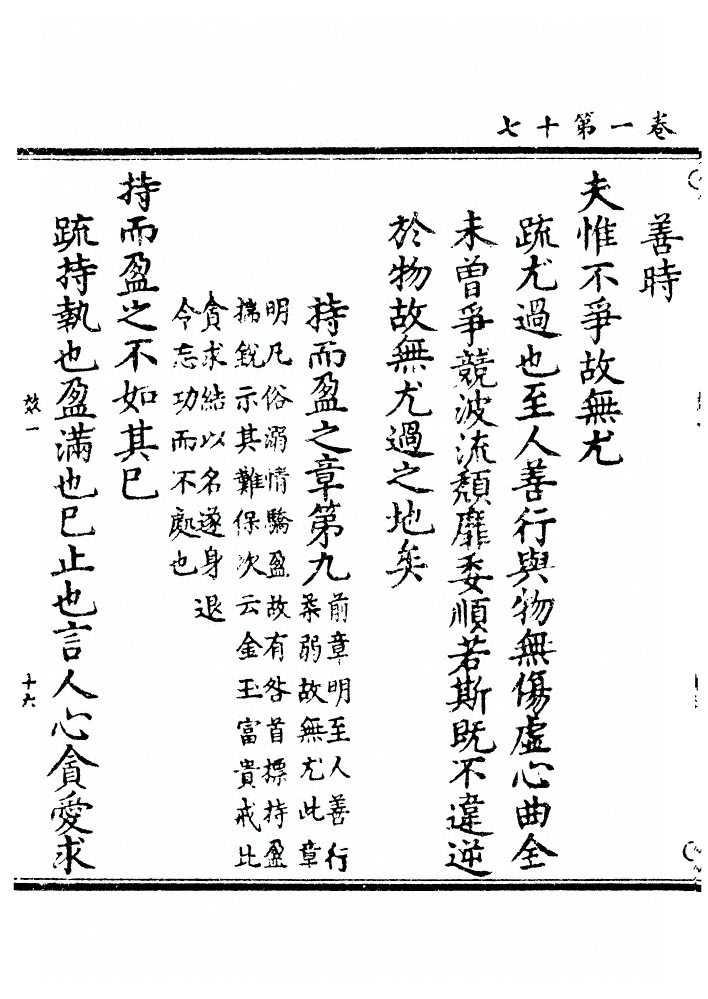 卷一第十七
善時
夫惟不爭故無尤
疏尤過也至人善行與物無傷虛心曲全
未曾爭競波流頹靡委順若斯既不違逆
於物故無尤過之地矣
持而盈之章第九
前章明至人善行
柔弱故無尤此章
明凡俗溺情驕盈故有咎首標持盈
揣銳示其難保次云金玉富貴戒比
貪求結以名遂身退
令忘功而不處也
持而盈之不如其已
疏持執也盈滿也已止也言人心貪愛求
效一
十六